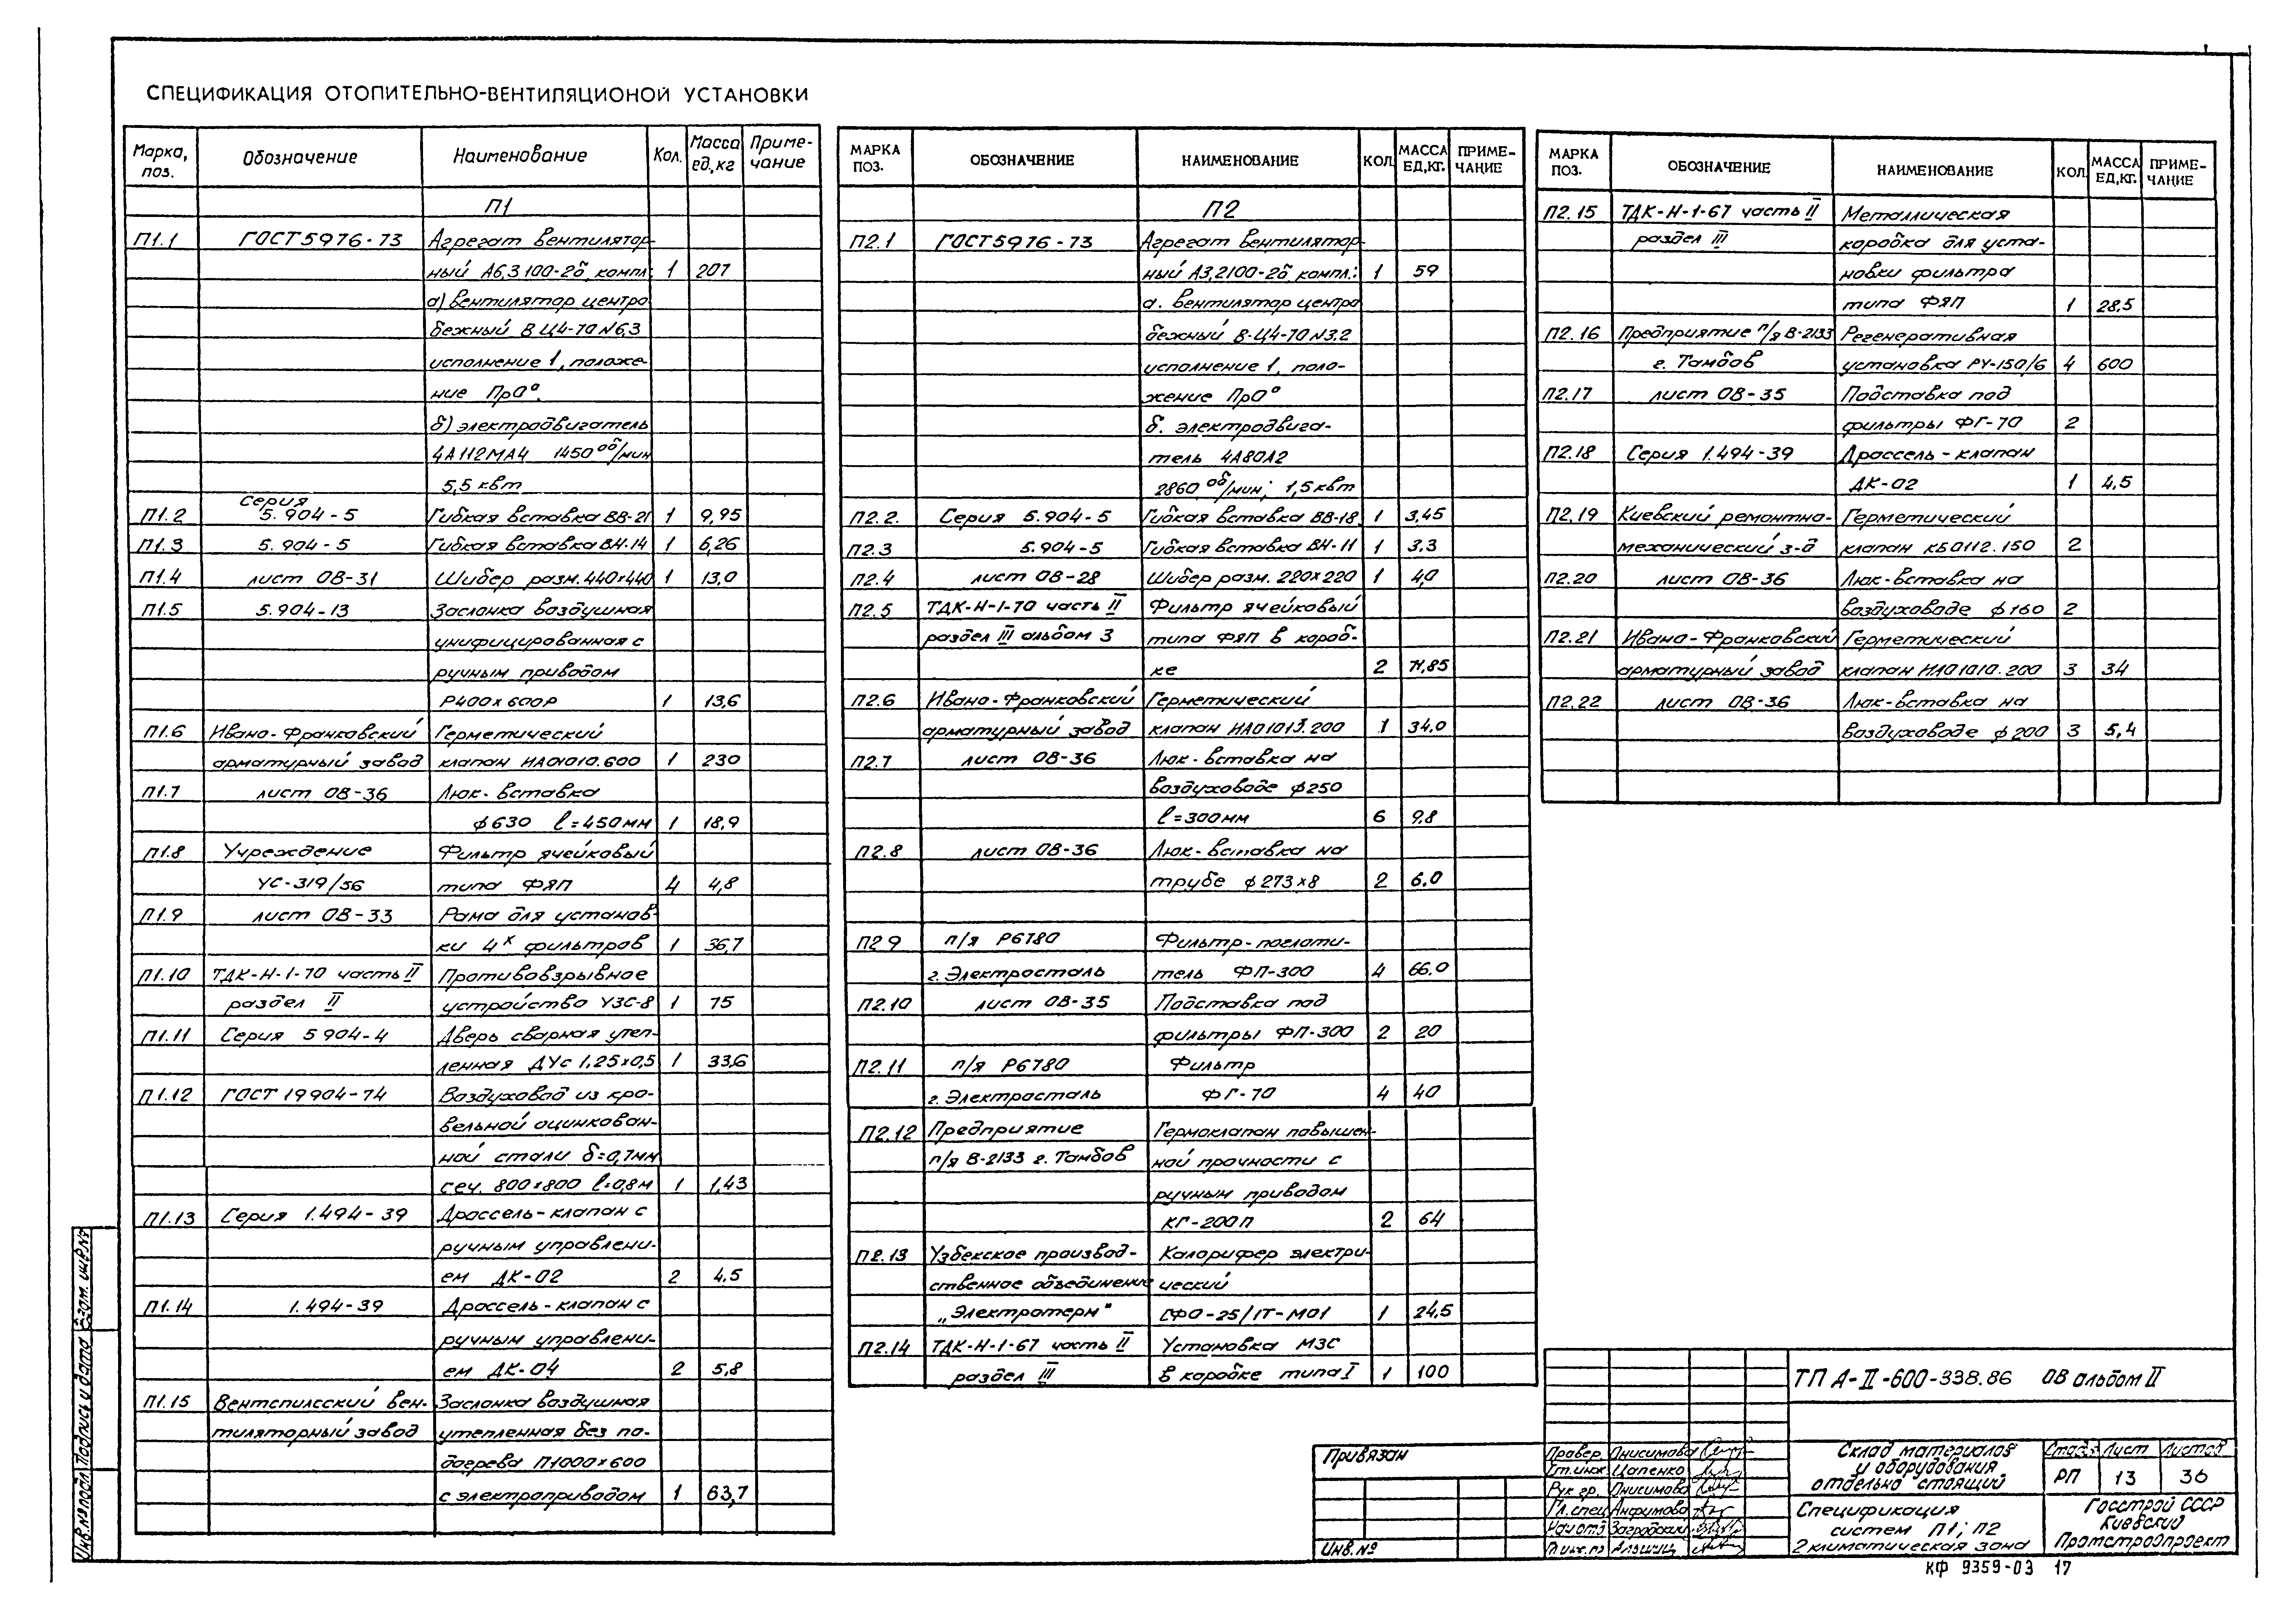 СПЕЦИФИКАЦИЯ ОТОПИТЕЛЬНО-ВЕНТИЛЯЦИОНОЙ УСТАНОВКИ
Марка, поз. Обозначение Наименование Кол. Масса ед.,кг Приме-чание
П1
П1.1 ГОСТ 5976-73 Агрегат вентилятор-
ный А6,3 100-2б, компл: 1 207
а) вентилятор центро
бежный В Ц4-70 N6,3
исполнение 1, положе-
ние Пр0°.
б) электродвигатель
4А112МА4 1450 об/мин
5,5 квт
П1.2 Серия 5.904-5 Гибкая вставка ВВ-21 1 9,95
П1.3 5.904-5 Гибкая вставка ВН-14 1 6,26
П1.4 лист ОВ-31 Шибер разм. 440х440 1 13,0
П1.5 5.904-13 Заслонка воздушная
унифицированная с
ручным приводом
Р400х600Р 1 13,6
П1.6 Ивано-Франковский Герметический
арматурный завод клапан ИА01010.600 1 230
П1.7 лист ОВ-36 Люк-вставка
ф630 l=450мм 1 18,9
П1.8 Учреждение Фильтр ячейковый
УС-319/56 типа ФЯП 4 4,8
П1.9 лист ОВ-33 Рама для установ-
ки 4х фильтров 1 36,7
П1.10 ТДК-Н-1-70 часть II Противовзрывное
раздел II устройство УЗС-8 1 75
П1.11 Серия 5 904-4 Дверь сварная утеп-
ленная ДУс 1,25х0,5 1 33,6
П1.12 ГОСТ 19904-74 Воздуховод из кро-
вельной оцинкован-
ной стали δ=0,7мм
сеч. 800х800 l=0,8м 1 1,43
П1.13 Серия 1.494-39 Дроссель-клапан с
ручным управлени-
ем ДК-02 2 4.5
П1.14 1.494-39 Дроссель-клапан с
ручным управлени-
ем ДК-04 2 5,8
П1.15 Вентспилсский вен- Заслонка воздушная
тиляторный завод утепленная без по-
догрева П1000х600
с электроприводом 1 63,7
МАРКА ПОЗ. ОБОЗНАЧЕНИЕ НАИМЕНОВАНИЕ КОЛ. МАССА ЕД,КГ. ПРИМЕ-ЧАНИЕ
П2
П2.1 ГОСТ 5976-73 Агрегат вентилятор-
ный А3,2100-2б, компл.: 1 59
а. вентилятор центро
бежный В-Ц4-70 N3.2
исполнение 1, поло-
жение Пр0°
б. электродвига-
тель 4А80А2
2860 об/мин; 1,5квт
П2.2. Серия 5.904-5 Гибкая вставка ВВ-18 1 3,45
П2.3 5.904-5 Гибкая вставка ВН-11 1 3.3
П2.4 лист ОВ-28 Шибер разм. 220х220 1 4,0
П2.5 ТДК-Н-1-70 часть II Фильтр ячейковый
раздел III альбом 3 типа ФЯП в короб-
ке 2 11,85
П2.6 Ивано-Франковский Герметический
арматурный завод клапан ИА01013.200 1 34,0
П2.7 лист ОВ-36 Люк-вставка на
воздуховоде ф250
l=300мм 6 9.8
П2.8 лист ОВ-36 Люк-вставка на
трубе ф273х8 2 6.0
П2 9 п/я Р6780 Фильтр-поглоти-
г. Электросталь тель ФП-300 4 66.0
П2.10 лист ОВ-35 Подставка под
фильтры ФП-300 2 20
П2.11 п/я Р6780 Фильтр
г. Электросталь ФГ-70 4 40
П2.12 Предприятие Гермоклапан повышен-
п/я В-2133 г. Тамбов ной прочности с
ручным приводом
КГ-200П 2 64
П2.13 Узбекское производ- Калорифер электри-
ственное объединение ческий
„Электротерм" СФО-25/1Т-М01 1 24,5
П2.14 ТДК-Н-1-67 часть II Установка МЗС
раздел III в коробке типа I 1 100
МАРКА ПОЗ. ОБОЗНАЧЕНИЕ НАИМЕНОВАНИЕ КОЛ. МАССА ЕД,КГ. ПРИМЕ-ЧАНИЕ
П2.15 ТДК-Н-1-67 часть II Металлическая
раздел III коробка для уста-
новки фильтра
типа ФЯП 1 28,5
П2.16 Предприятие п/я В-2133 Регенеративная
г. Тамбов установка РУ-150/6 4 600
П2.17 лист ОВ-35 Подставка под
фильтры ФГ-70 2
П2.18 Серия 1.494-39 Дроссель-клапан
ДК-02 1 4,5
П2.19 Киевский ремонтно- Герметический
механический з-д клапан КБ0112.150 2
П2.20 лист ОВ-36 Люк-вставка на
воздуховоде ф160 2
П2.21 Ивано-Франковский Герметический
арматурный завод клапан ИА01010.200 3 34
П2.22 лист ОВ-36 Люк-вставка на
воздуховоде ф200 3 5,4
ТП А-II-600-338.86 ОВ альбом II
Привязан
Инв.№
Провер. Онисимова
Ст.инж. Цапенко
Рук гр. Онисимова
Гл.спец Анфимова
Нач отд Загродский
Склад материалов
и оборудования
отдельно стоящий
Стад. Лист Листов
РП 13 36
Спецификация
систем П1; П2
2 климатическая зона
Госстрой СССР
Киевский
Промстройпроект
КФ 9359-03 17
Инв.№ подл Подпись и дата Взам. инв.№